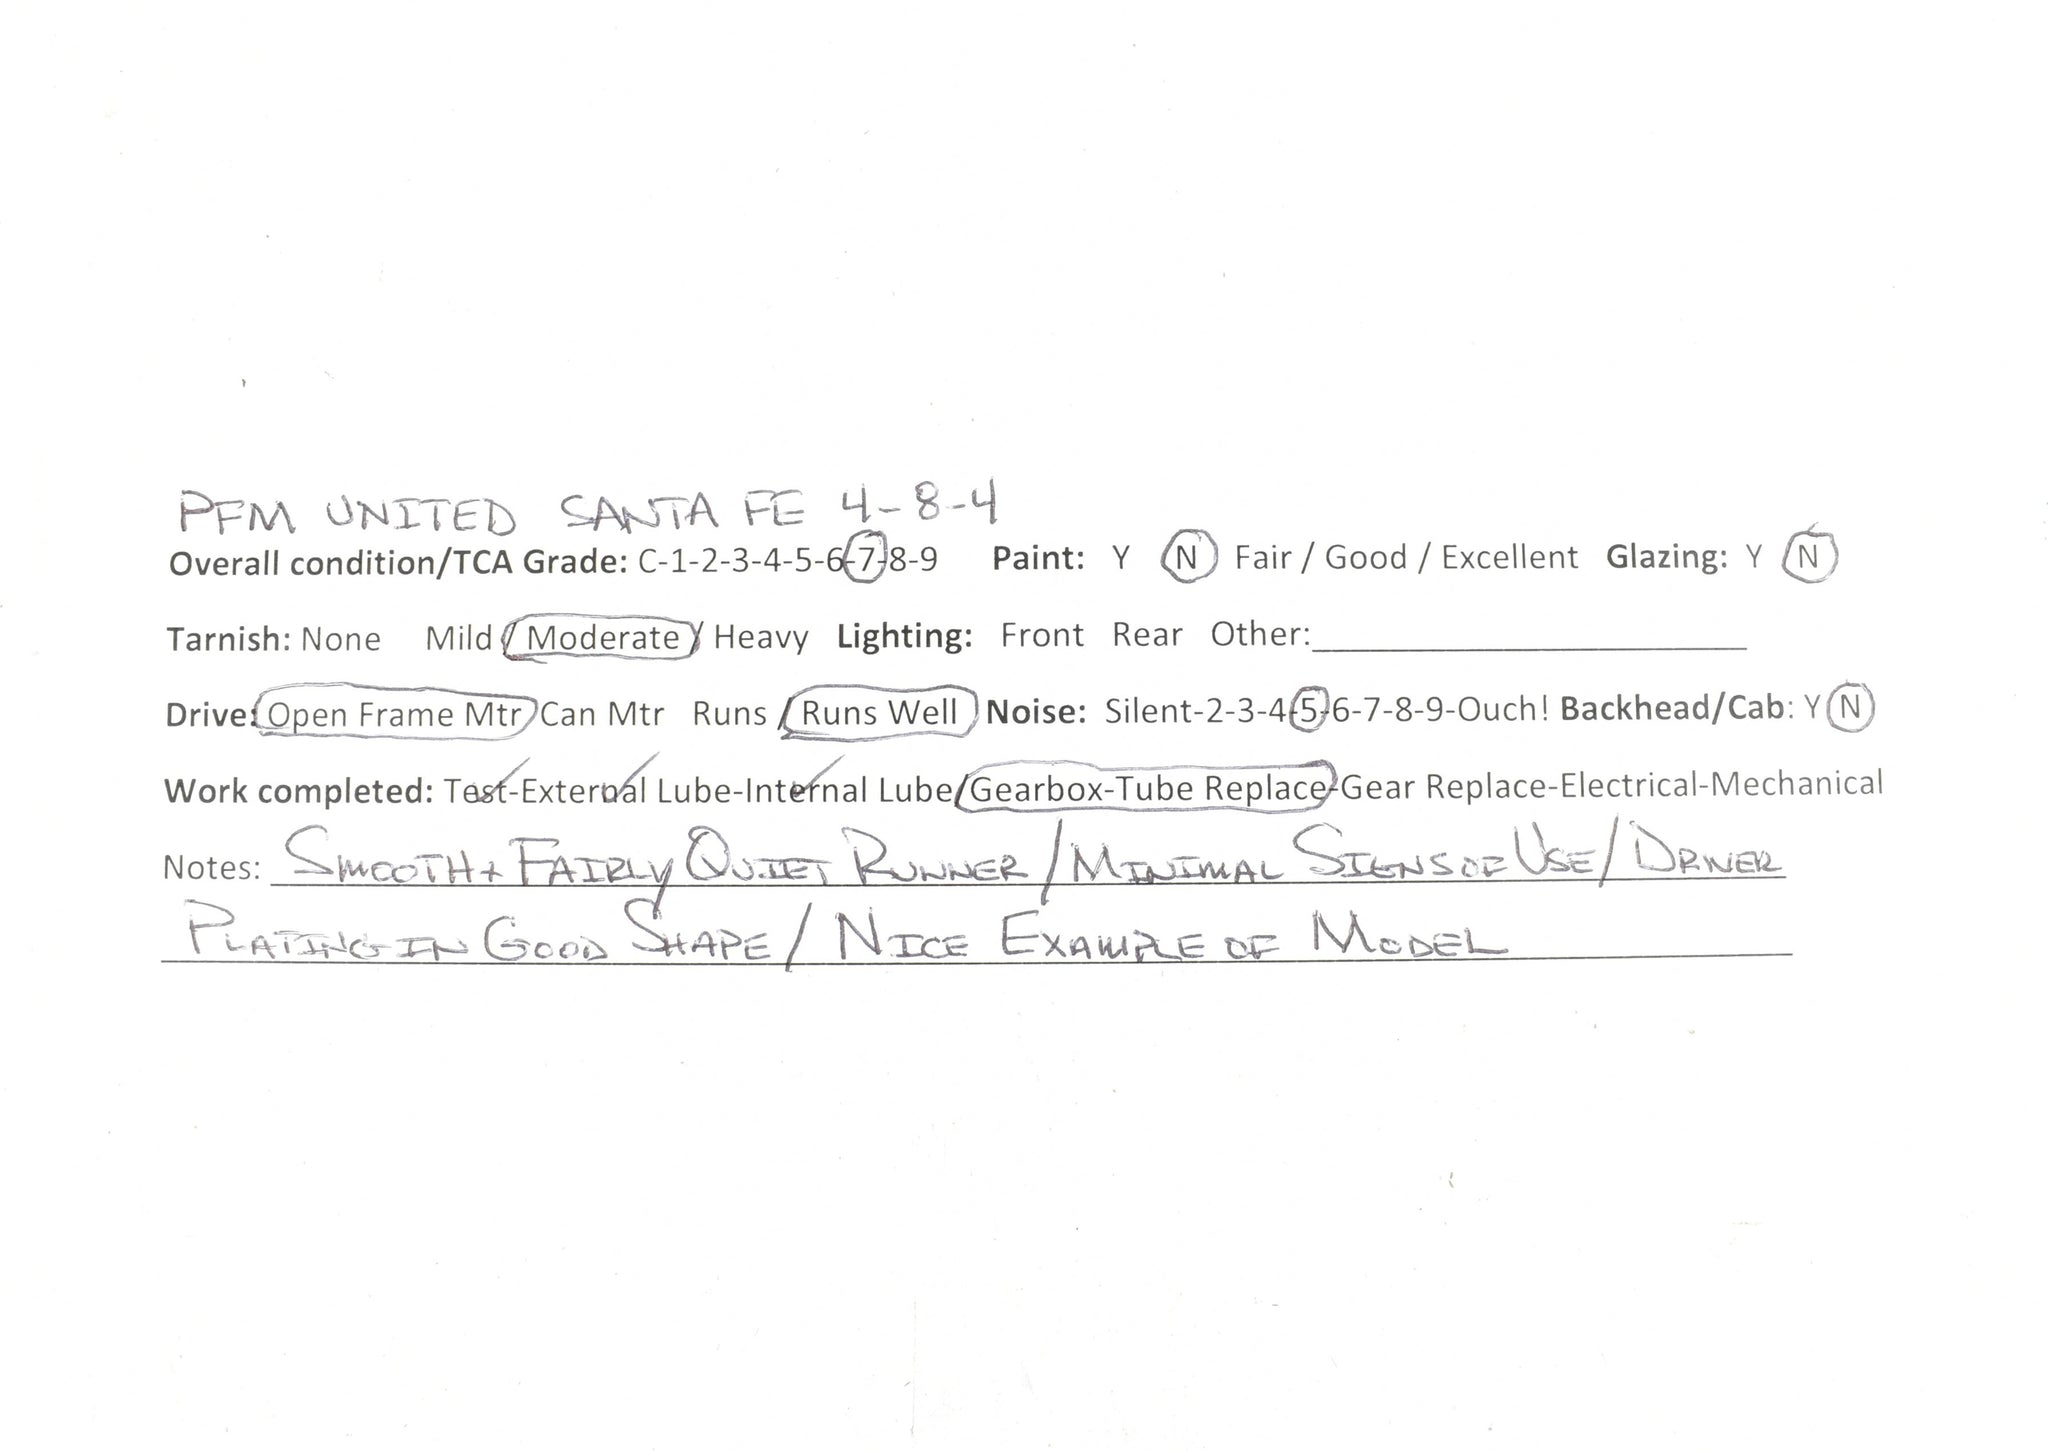 PFM UNITED SANTA FE 4-8-4
Overall condition/TCA Grade: C-1-2-3-4-5-6-7-8-9 Paint: Y N Fair / Good / Excellent Glazing: Y N
Tarnish: None Mild / Moderate / Heavy Lighting: Front Rear Other:
Drive: Open Frame Mtr Can Mtr Runs / Runs Well Noise: Silent-2-3-4-5-6-7-8-9-Ouch! Backhead/Cab: Y N
Work completed: Test-External Lube-Internal Lube/Gearbox-Tube Replace-Gear Replace-Electrical-Mechanical
Notes: SMOOTH + FAIRLY QUIET RUNNER / MINIMAL SIGNS OF USE / DRIVER
PLATING IN GOOD SHAPE / NICE EXAMPLE OF MODEL